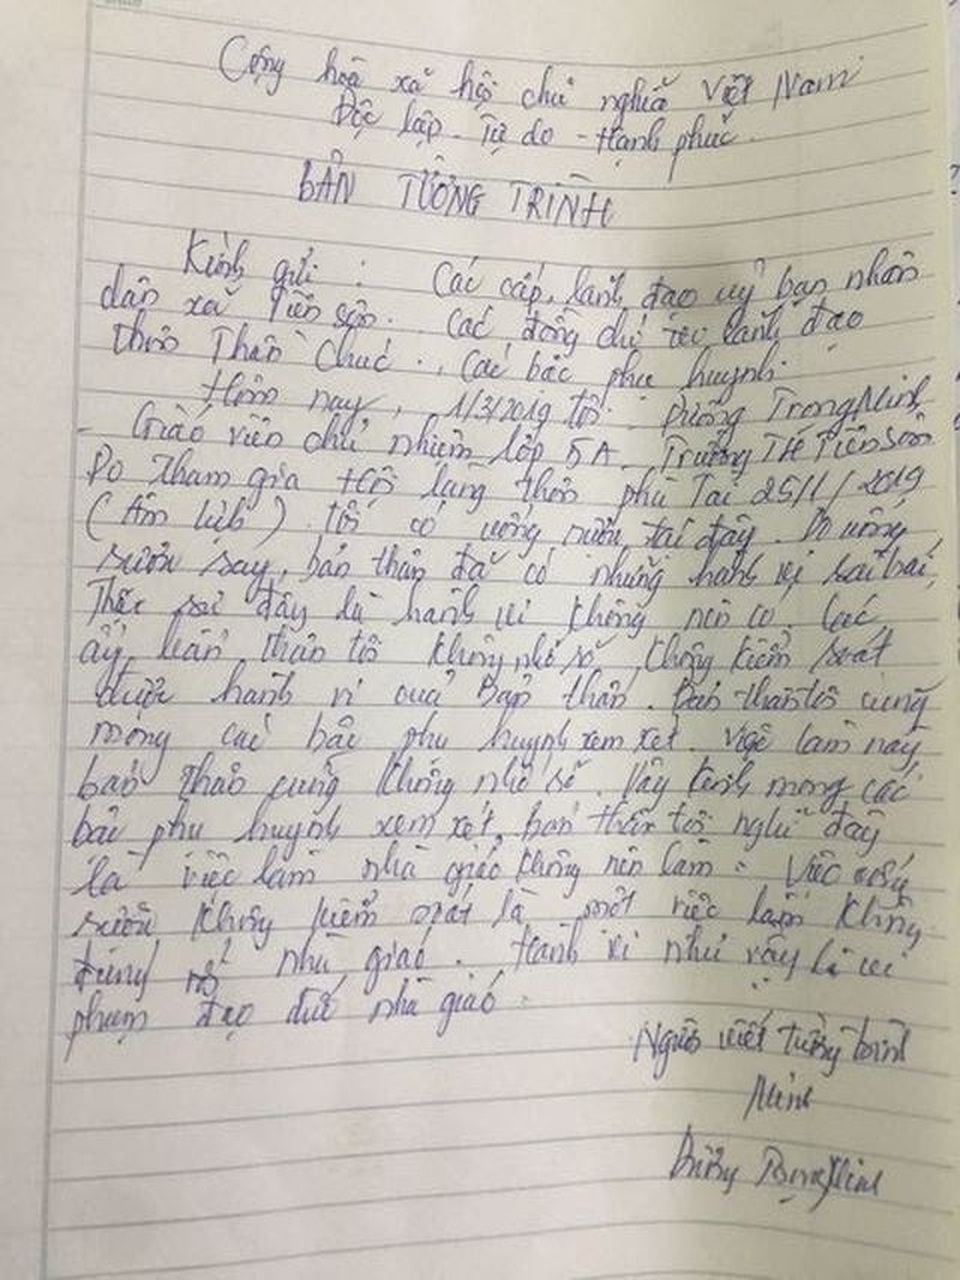 Cộng hoà xã hội chủ nghĩa Việt Nam
Độc lập - Tự do - Hạnh phúc.
BẢN TƯỜNG TRÌNH
Kính gửi : Các cấp, lãnh đạo uỷ ban nhân
dân xã Tiên Sơn. Các đồng chí lãnh đạo
thôn Thần Chúc., Các bậc phụ huynh.
Hôm nay, 1/3/2019 tôi: Dương Trọng Minh
- Giáo viên chủ nhiệm lớp 5A - Trường TH Tiên Sơn
Do tham gia hội làng thôn phù Tài 25/1/2019
(Âm lịch) tôi có uống rượu tại đây. Do uống
rượu say, bản thân đã có những hành vi sai trái,
Thực sai đây là hành vi không nên có. Lúc
ấy, bản thân tôi không nhớ rõ, không kiểm soát
được hành vi của bản thân. Bản thân tôi cũng
mong các bậc phụ huynh xem xét. Việc làm này
bản thân cũng không nhớ rõ. Vậy kính mong các
bậc phụ huynh xem xét, bản thân tôi nghĩ đây
là việc làm nhà giáo không nên làm. Việc uống
rượu không kiểm soát là một việc làm không
đúng nhà giáo. Hành vi như vậy là vi
phạm đạo đức nhà giáo.
Người viết tường trình
Minh
Dương Trọng Minh